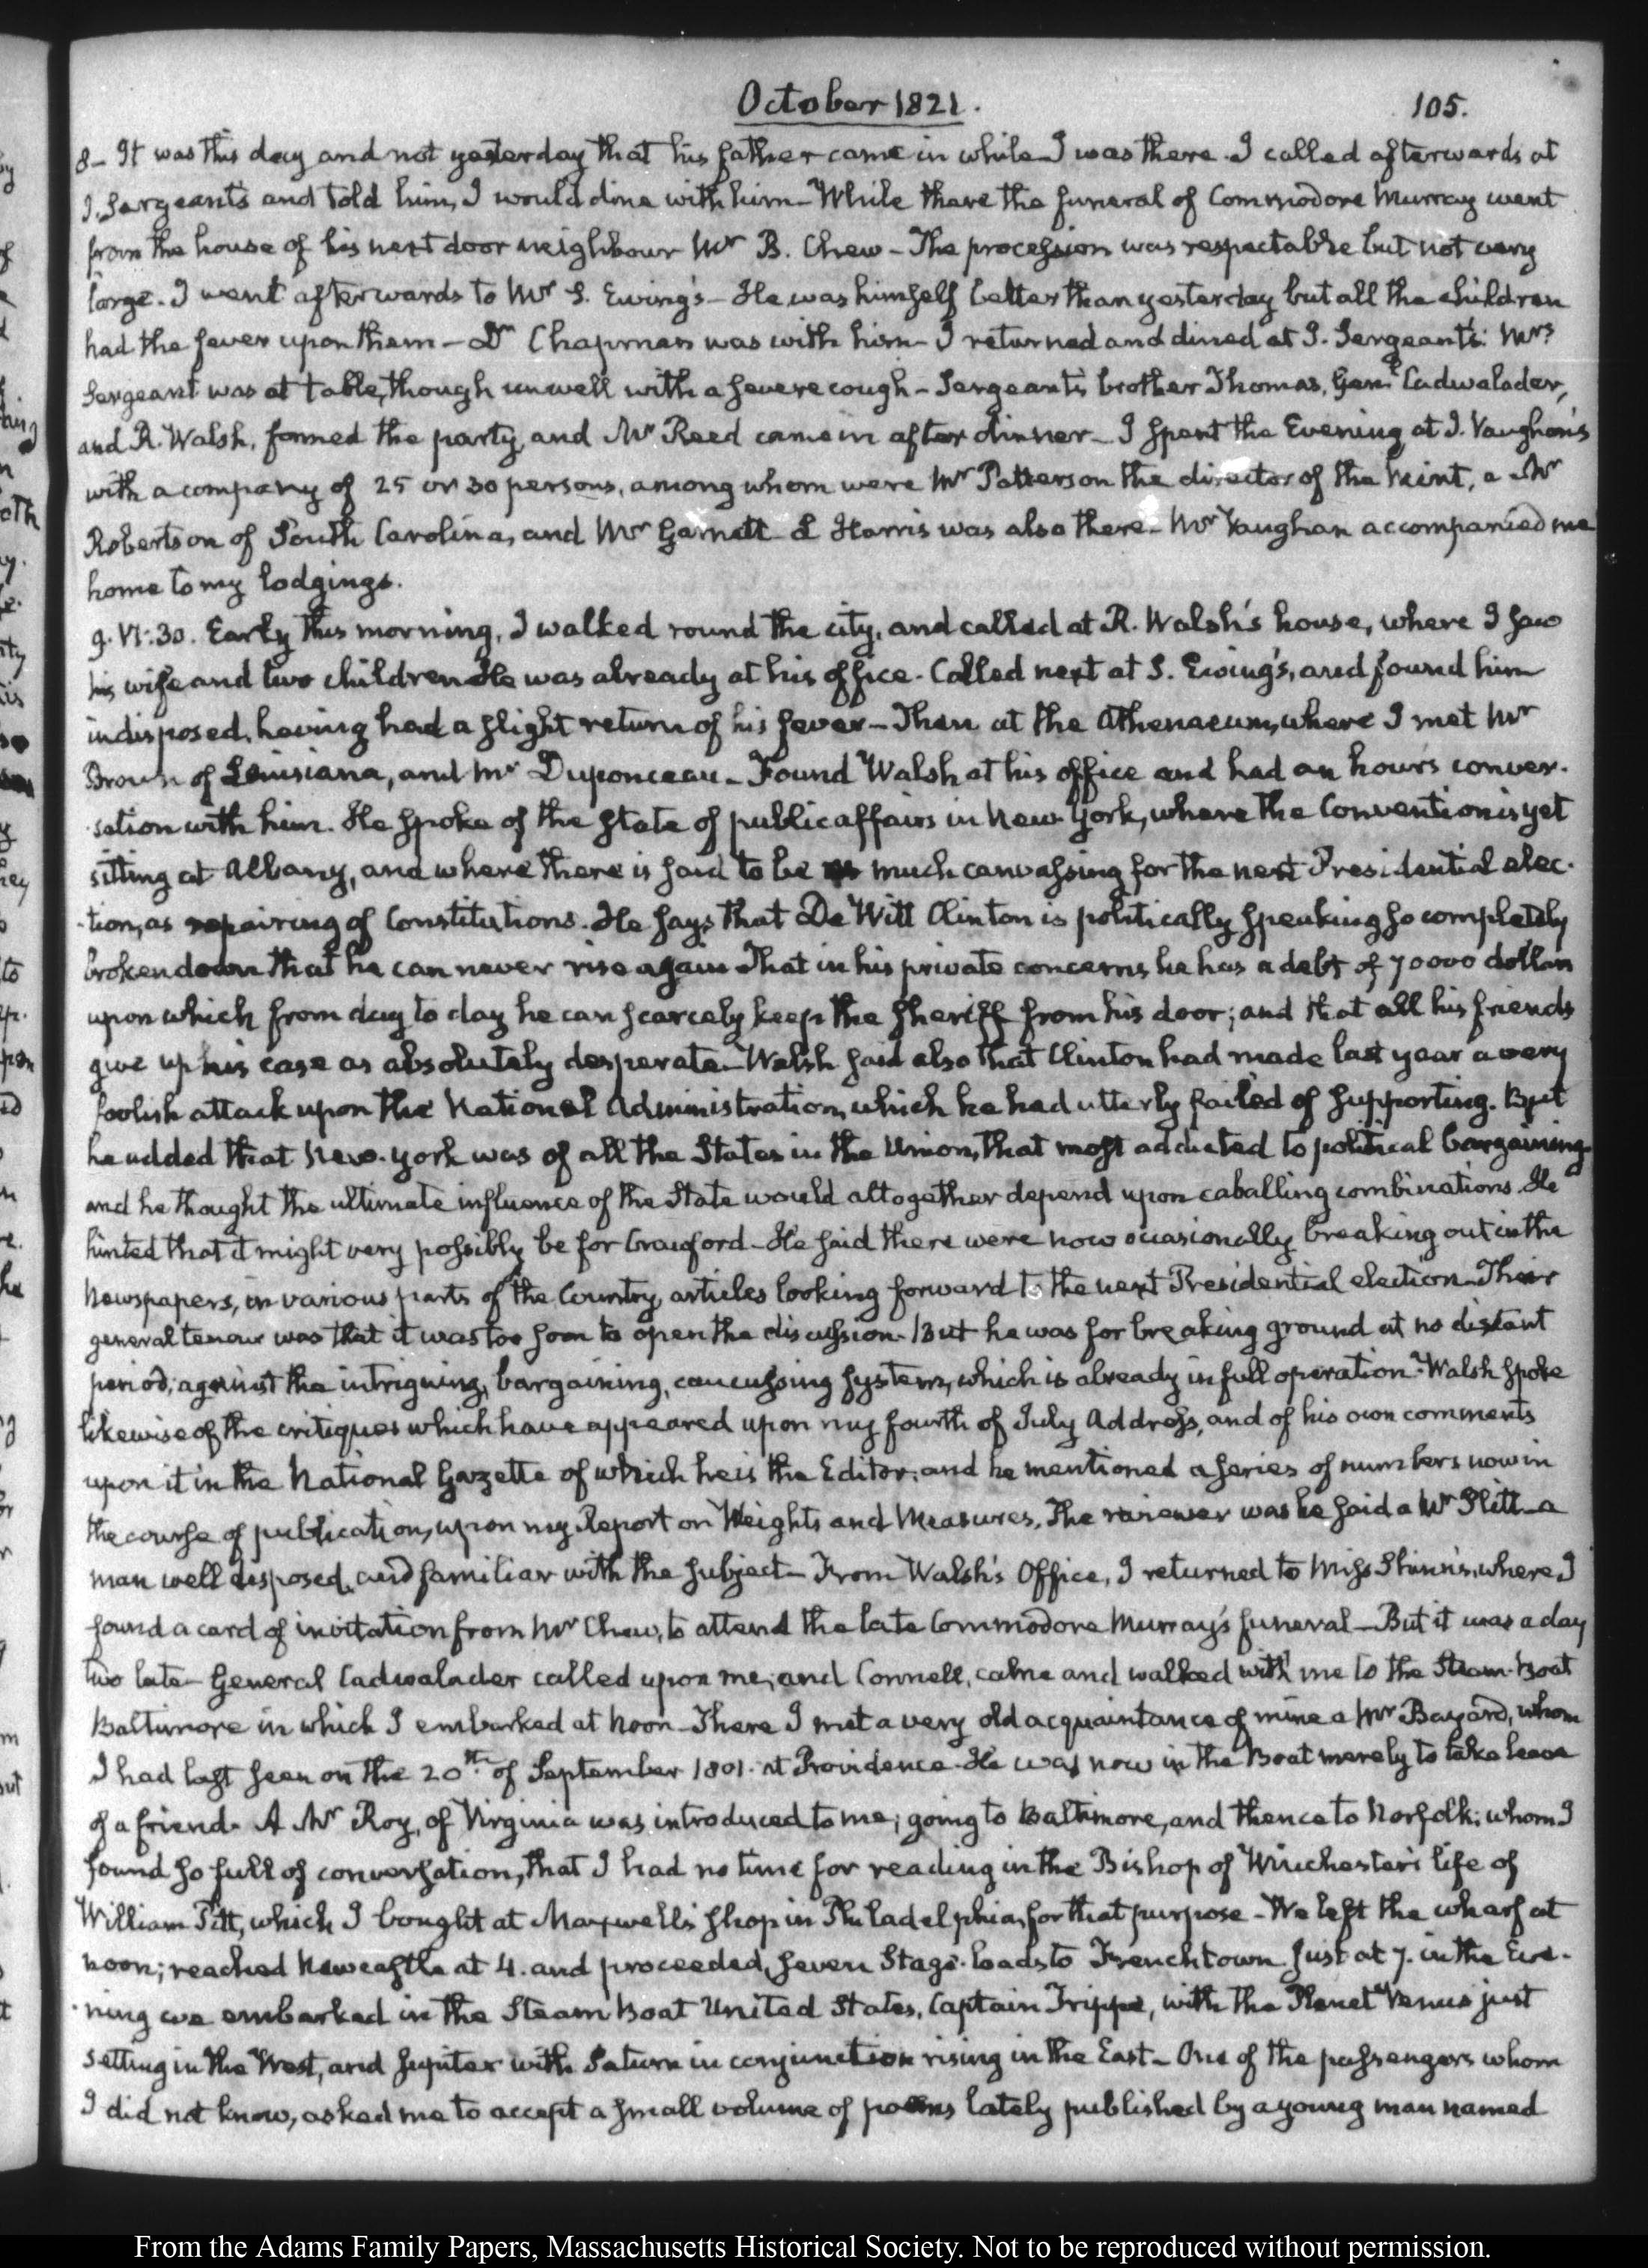 October 1821.
105.
8– It was this day and not yesterday that his father came in while I was there. I called afterwards at
J. Sergeant's and told him, I would dine with him– While there the funeral of Commodore Murray went
from the house of his next door neighbour Mr B. Chew– The procession was respectable but not very
large. I went afterwards to Mr S. Ewing's– He was himself better than yesterday but all the children
had the fever upon them– Dr Chapman was with him– I returned and dined at J. Sergeant's. Mrs
Sergeant was at table, though unwell with a severe cough– Sergeant's brother Thomas, Genl Cadwalader,
and R. Walsh, formed the party, and Mr Reed came in after dinner– I spent the Evening at J. Vaughan's
with a company of 25 or 30 persons, among whom were Mr Patterson the director of the Mint, a Mr
Robertson of South Carolina, and Mr Garnett– L Harris was also there– Mr Vaughan accompanied me
home to my lodgings.
9. VI:30. Early this morning, I walked round the city, and called at R. Walsh's house, where I saw
his wife and two children– He was already at his office. Called next at S. Ewing's, and found him
indisposed, having had a slight return of his fever– Then at the Athenaeum, where I met Mr
Brown of Louisiana, and Mr Duponceau– Found Walsh at his office and had an hour's conver-
-sation with him. He spoke of the state of public affairs in New-York, where the Convention is yet
sitting at Albany, and where there is said to be as much canvassing for the next Presidential elec-
-tion, as repairing of Constitutions. He says that De Witt Clinton is politically speaking so completely
broken down that he can never rise again– That in his private concerns he has a debt of 70000 dollars
upon which from day to day he can scarcely keep the Sheriff from his door; and that all his friends
give up his case as absolutely desperate– Walsh said also that Clinton had made last year a very
foolish attack upon the National Administration, which he had utterly failed of supporting. But
he added that New-York was of all the States in the Union, that most addicted to political bargaining
and he thought the ultimate influence of the State would altogether depend upon caballing combinations. He
hinted that it might very possibly be for Crawford– He said there were now occasionally breaking out in the
Newspapers, in various parts of the Country, articles looking forward to the next Presidential election– Their
general tenour was that it was too soon to open the discussion. But he was for breaking ground at no distant
period, against the intriguing, bargaining, caucussing system, which is already in full operation– Walsh spoke
likewise of the critiques which have appeared upon my fourth of July Address, and of his own comments
upon it in the National Gazette of which he is the Editor; and he mentioned a series of numbers now in
the course of publication, upon my Report on Weights and Measures. The reviewer was he said a Mr Slitt– a
man well disposed, and familiar with the subject– From Walsh's Office, I returned to Miss Shinn's, where I
found a card of invitation from Mr Chew, to attend the late Commodore Murray's funeral– But it was a day
two late– General Cadwalader called upon me; and Connell, came and walked with me to the Steam-Boat
Baltimore in which I embarked at Noon– There I met a very old acquaintance of mine a Mr Bayard, whom
I had last seen on the 20th of September 1801. at Providence– He was now in the Boat merely to take leave
of a friend– A Mr Roy, of Virginia was introduced to me; going to Baltimore, and thence to Norfolk; whom I
found so full of conversation, that I had no time for reading in the Bishop of Winchester's life of
William Pitt, which I bought at Maxwell's shop in Philadelphia, for that purpose– We left the wharf at
noon; reached Newcastle at 4. and proceeded, seven Stage-loads to Frenchtown. Just at 7. in the Eve-
-ning we embarked in the Steam Boat United States, Captain Trippe, with the Planet Venus just
setting in the West, and Jupiter with Saturn in conjunction rising in the East– One of the passengers whom
I did not know, asked me to accept a small volume of poems lately published by a young man named
From the Adams Family Papers, Massachusetts Historical Society. Not to be reproduced without permission.